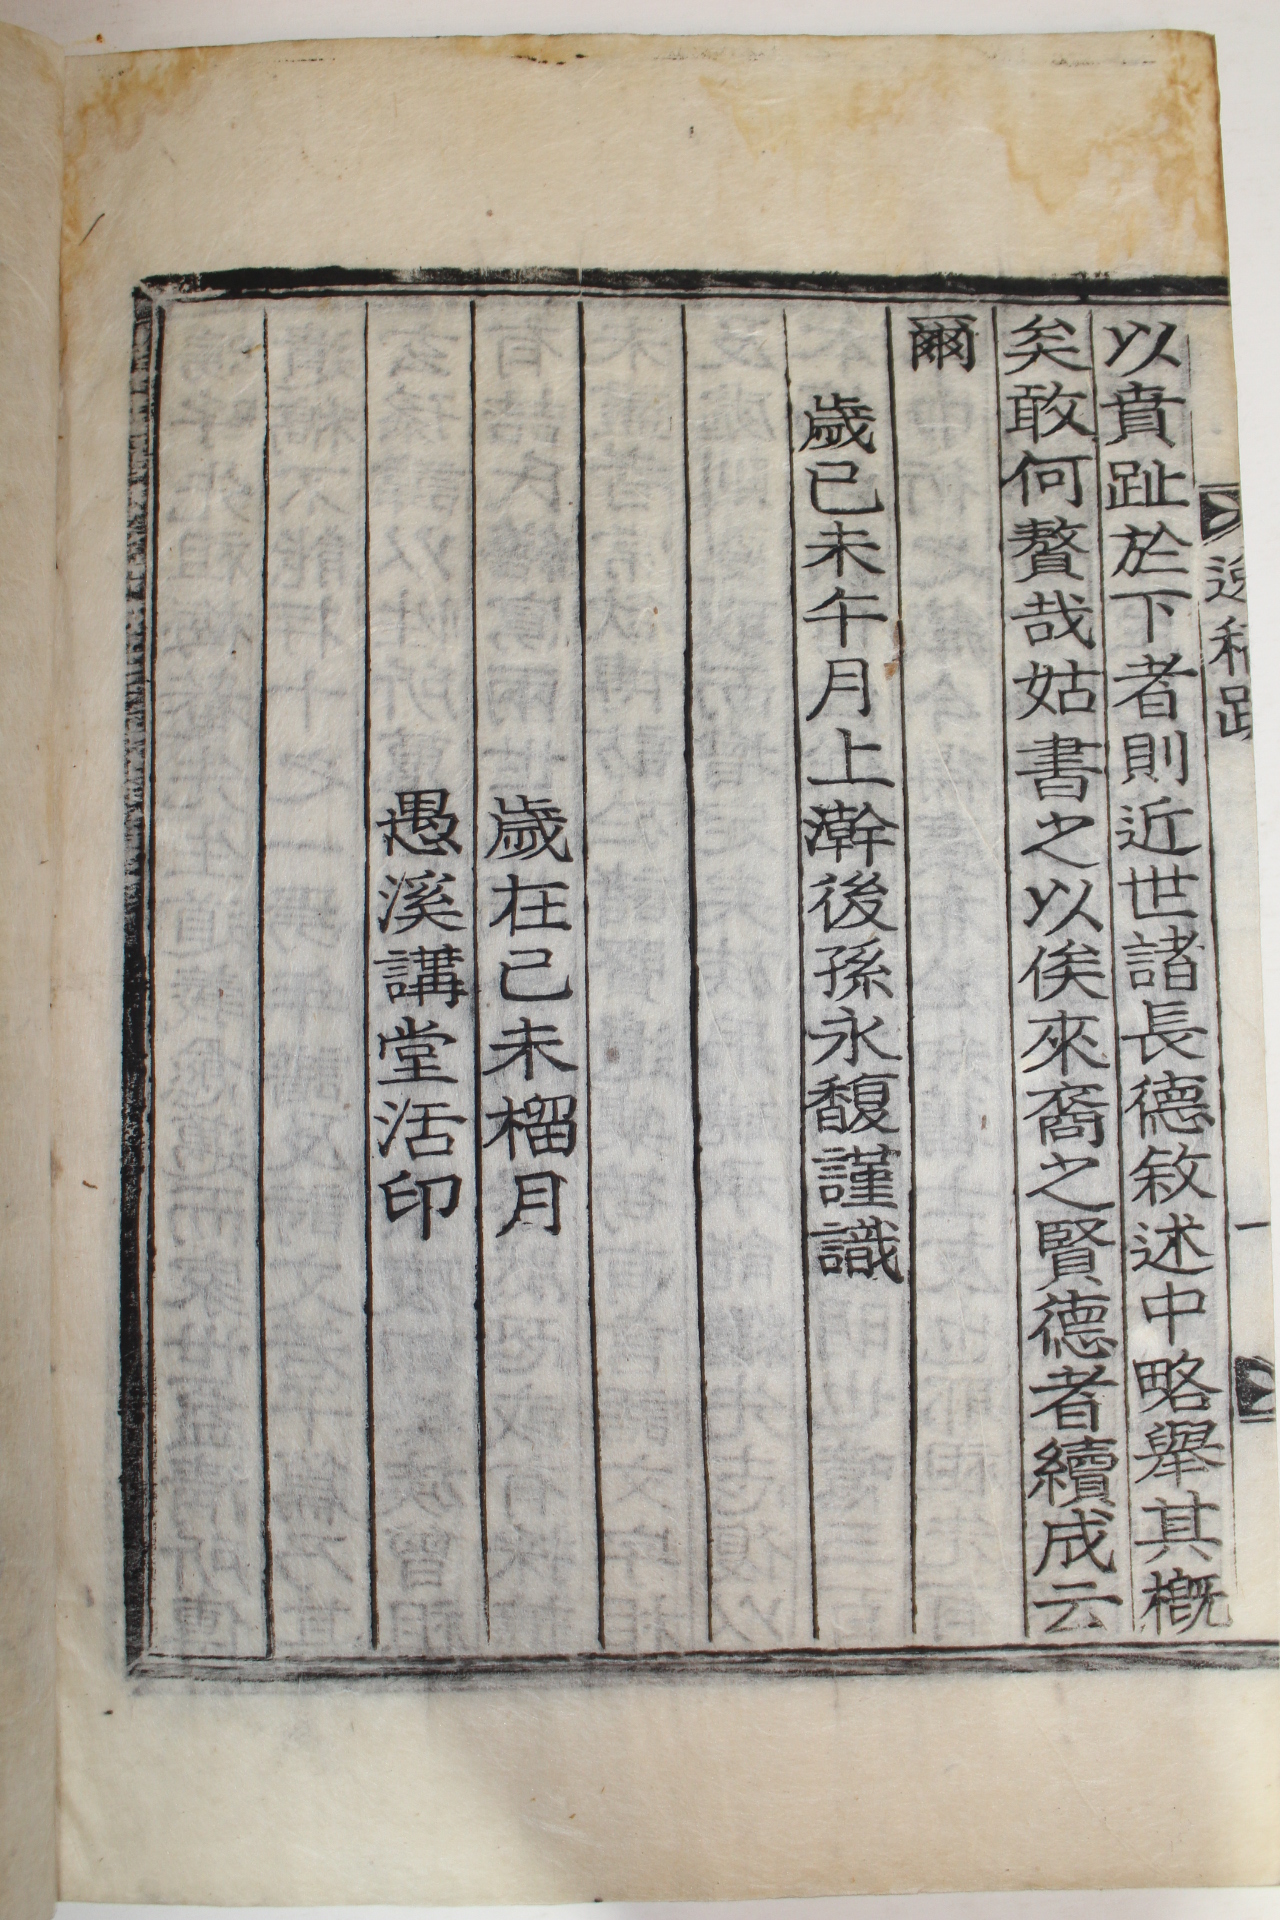 逸稿跋
一
以賁趾於下者則近世諸長德敘述中略擧其槪
矣敢何贅哉姑書之以俟來裔之賢德者續成云
爾
歲己未午月上澣後孫永馥謹識
歲在己未榴月
愚溪講堂活印